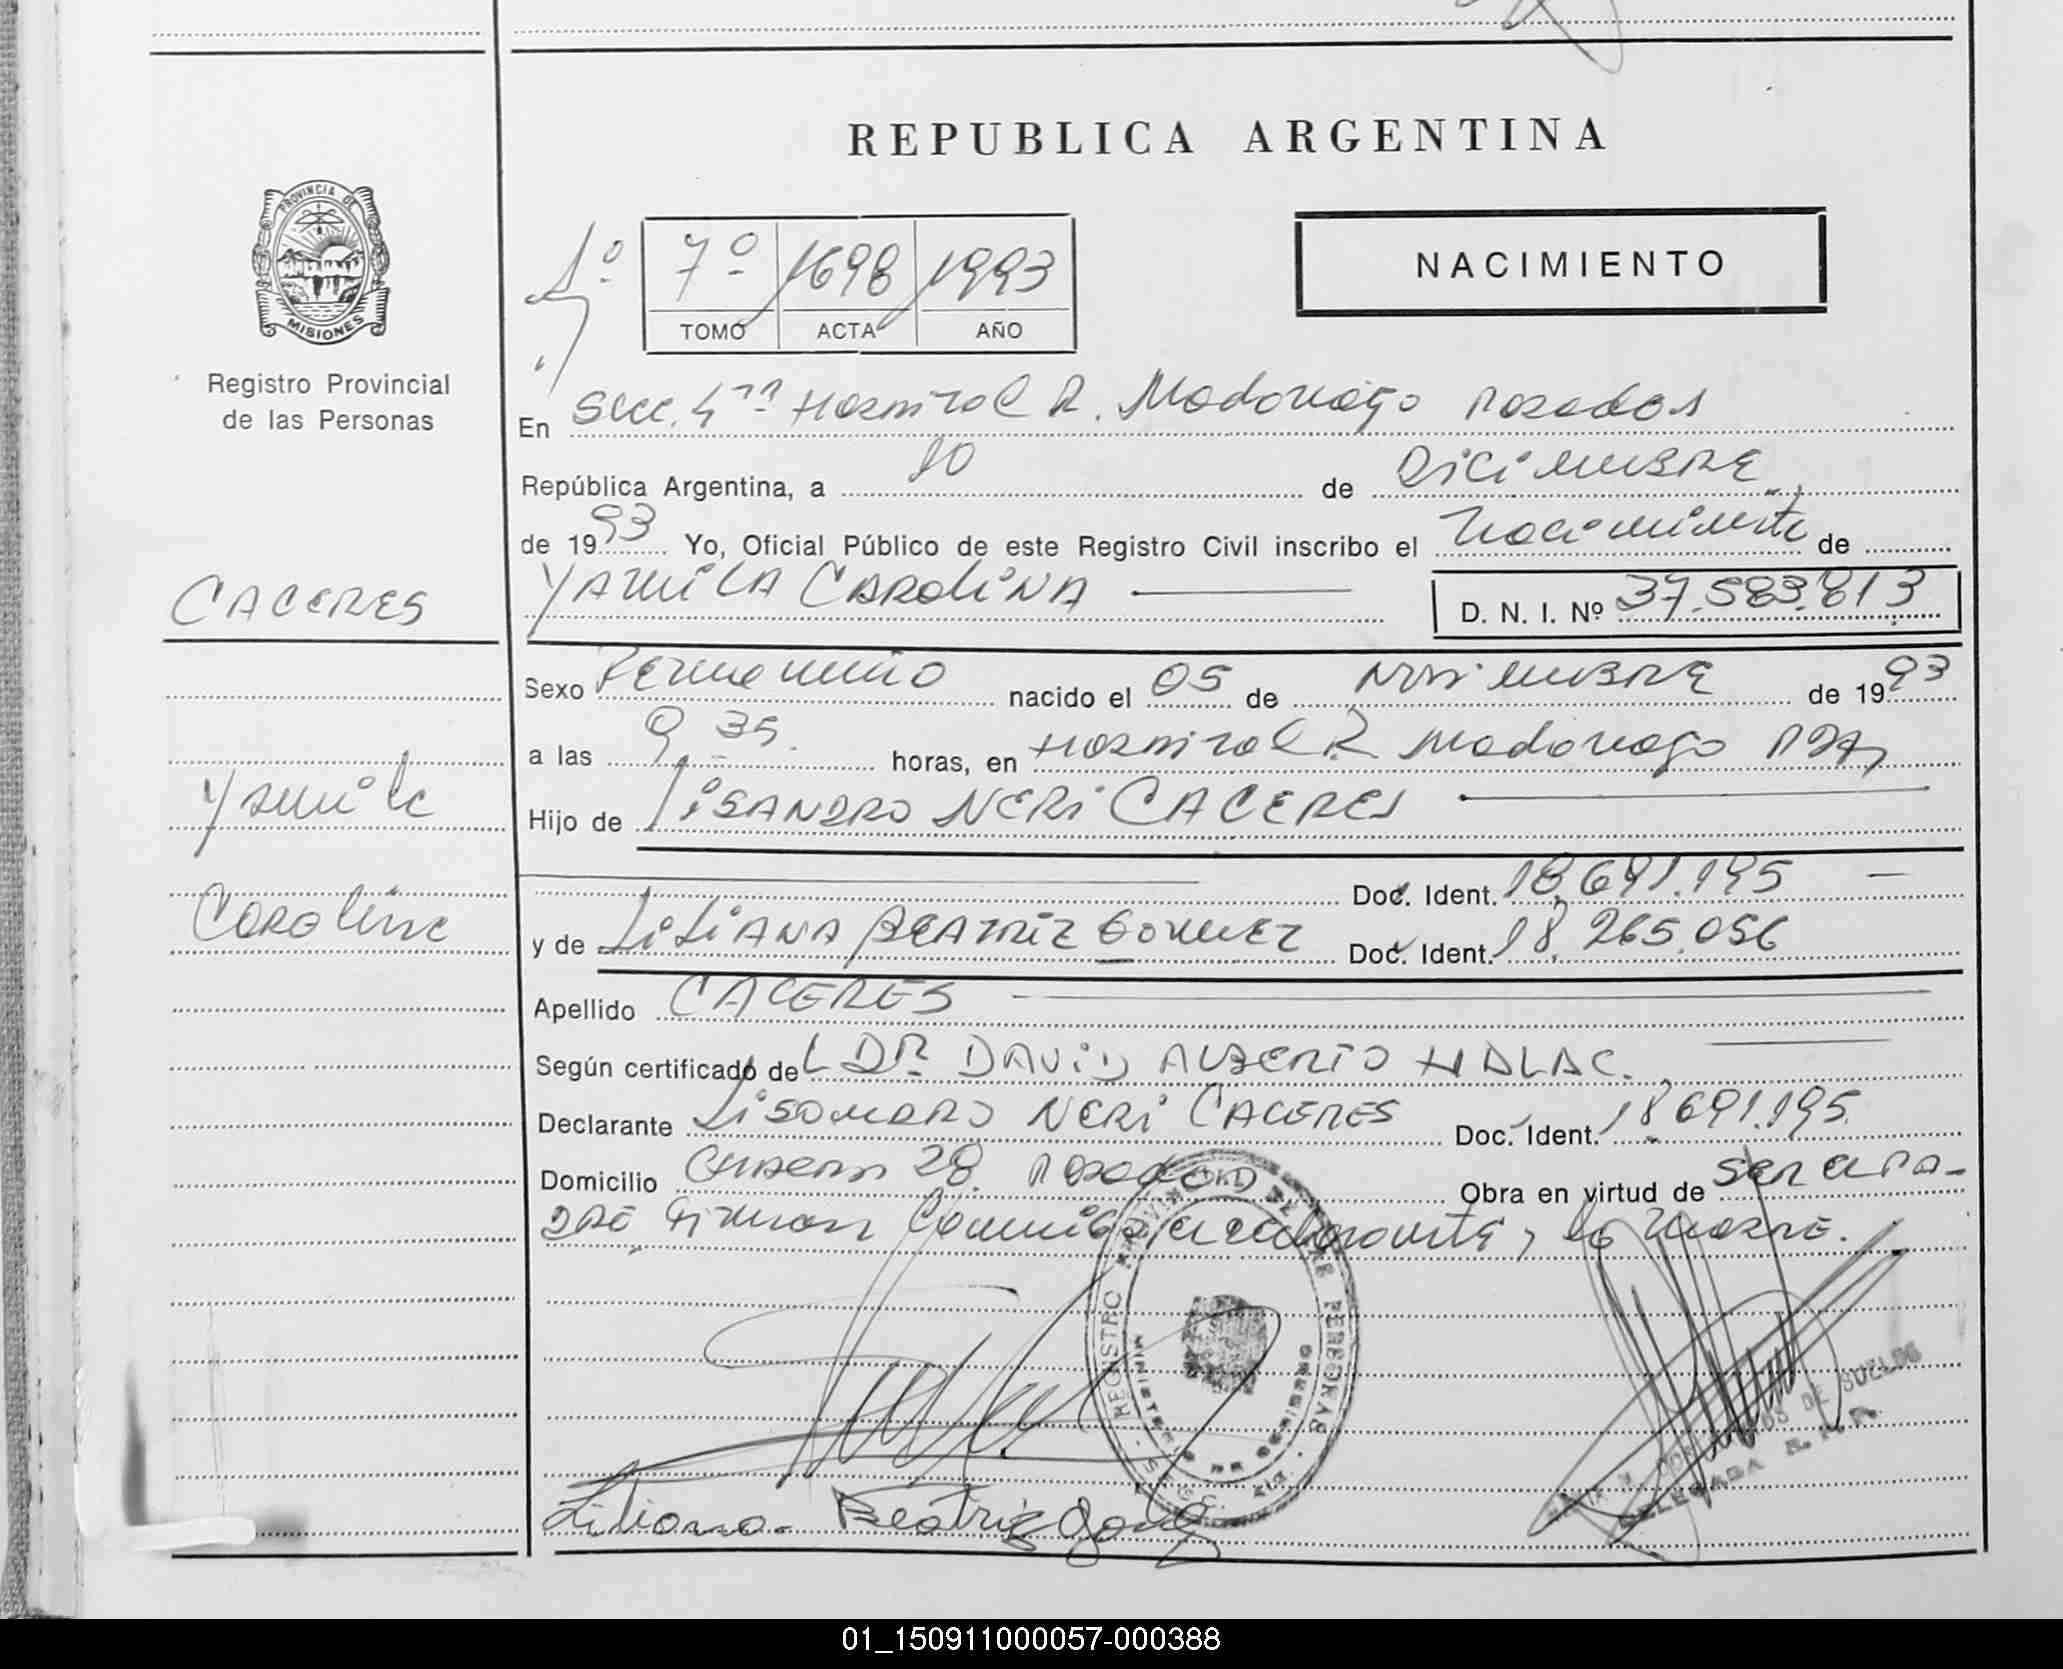 REPUBLICA ARGENTINA
PROVINCIA DE
MISIONES
Registro Provincial
de las Personas
7º 1698 1993
TOMO ACTA AÑO
NACIMIENTO
En Secc. 4ta Hospital R. Madariaga Posadas
República Argentina, a 10 de Diciembre
de 1993 Yo, Oficial Público de este Registro Civil inscribo el Nacimiento de
CACERES
YAMILA CAROLINA D. N. I. Nº 37.583.813
Sexo Femenino nacido el 05 de Noviembre de 1993
a las 9,35. horas, en Hospital R. Madariaga
Yamila
Hijo de LISANDRO NERI CACERES
Doc. Ident. 18.691.195
Carolina
y de LILIANA BEATRIZ GOMEZ Doc. Ident. 18.265.056
Apellido CACERES
Según certificado del DR. DAVID ALBERTO HALAC.
Declarante LISANDRO NERI CACERES Doc. Ident. 18.691.195.
Domicilio 28. Posadas Obra en virtud de ser el Pa-
dre Firman la Madre.
REGISTRO PROVINCIAL DE LAS PERSONAS
MINISTERIO DE GOBIERNO
Liliana Beatriz
DE SUELDO
DELEGADA
01_150911000057-000388